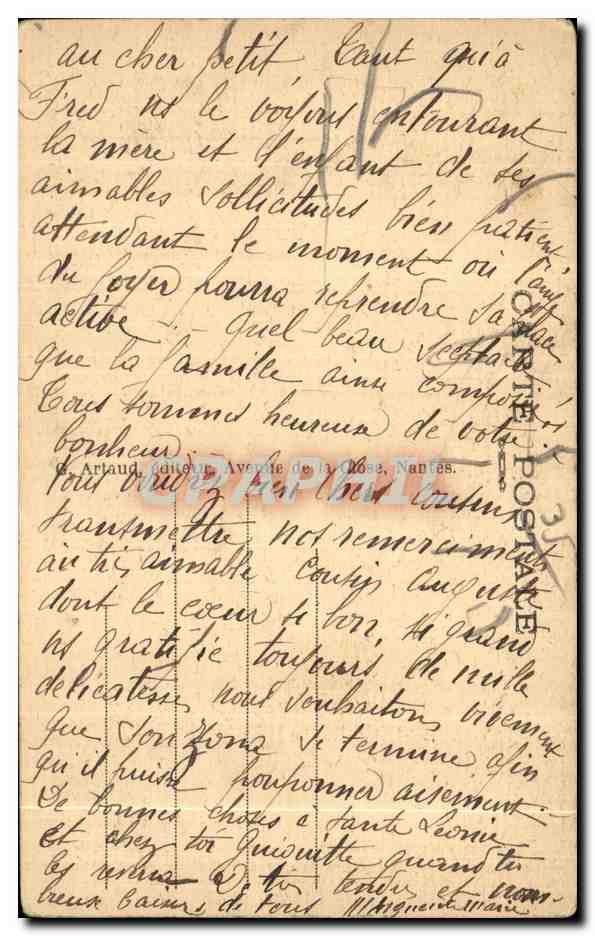 au cher petit. Tant qu'à
Fred ns le voyons entourant
la mère et l'enfant de ses
aimables sollicitudes bien patient
attendant le moment où
du foyer pourra reprendre sa place
active - . - Quel beau
que la famille ainsi composée !
Tous sommes heureux de votre
bonheur
G. Artaud, éditeur, Avenue de la Close, Nantes.
Vous voudrez bien chers cousins
transmettre nos remerciments
au très aimable cousin Auguste
dont le cœur si bon, si grand
ns gratifie toujours de mille
délicatesses nous souhaitons vivement
que son zona se termine afin
qu'il puisse pouponner aisément.
De bonnes choses à tante Léonie
et chez toi quand tu
les verras De très tendres et nom-
breux baisers de tous Marguerite Marie
CARTE POSTALE
35
CPAPHIL